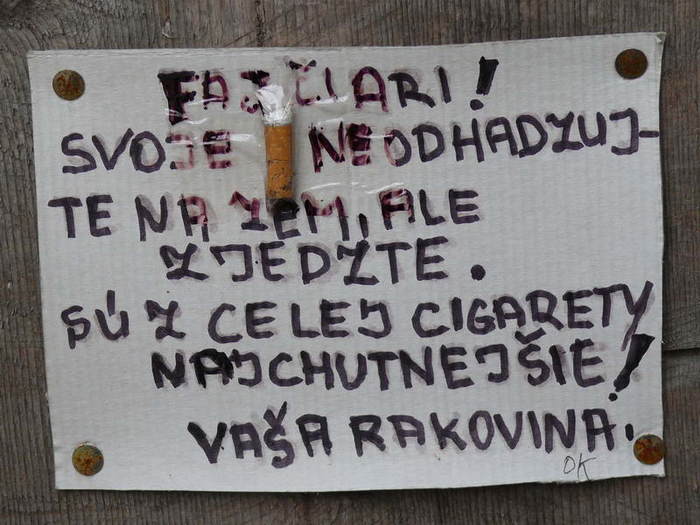 FAJČIARI!
SVOJE NEODHADZUJ-
TE NA ZEM, ALE
ZJEDZTE.
SÚ Z CELEJ CIGARETY
NAJCHUTNEJŠIE!
VAŠA RAKOVINA.
OK